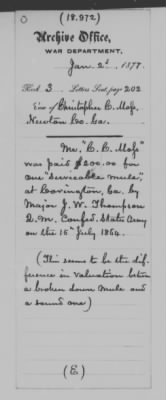 (18,972)
Archive Office,
WAR DEPARTMENT,
Jan. 2d, 1877.
Rec'd. 3. Letters Sent, page 202
Christopher C. Moss,
Newton Co. Ga.
Mr. "C. C. Moss"
was paid $200.00 for
one "serviceable mule,"
at Covington, Ga. by
Major J. W. Thompson
Q. M. Confed. State Army
on the 15th July 1864.
(This seems to be the dif-
ference in valuation betw'n
a broken down mule and
a sound one)
(E.)